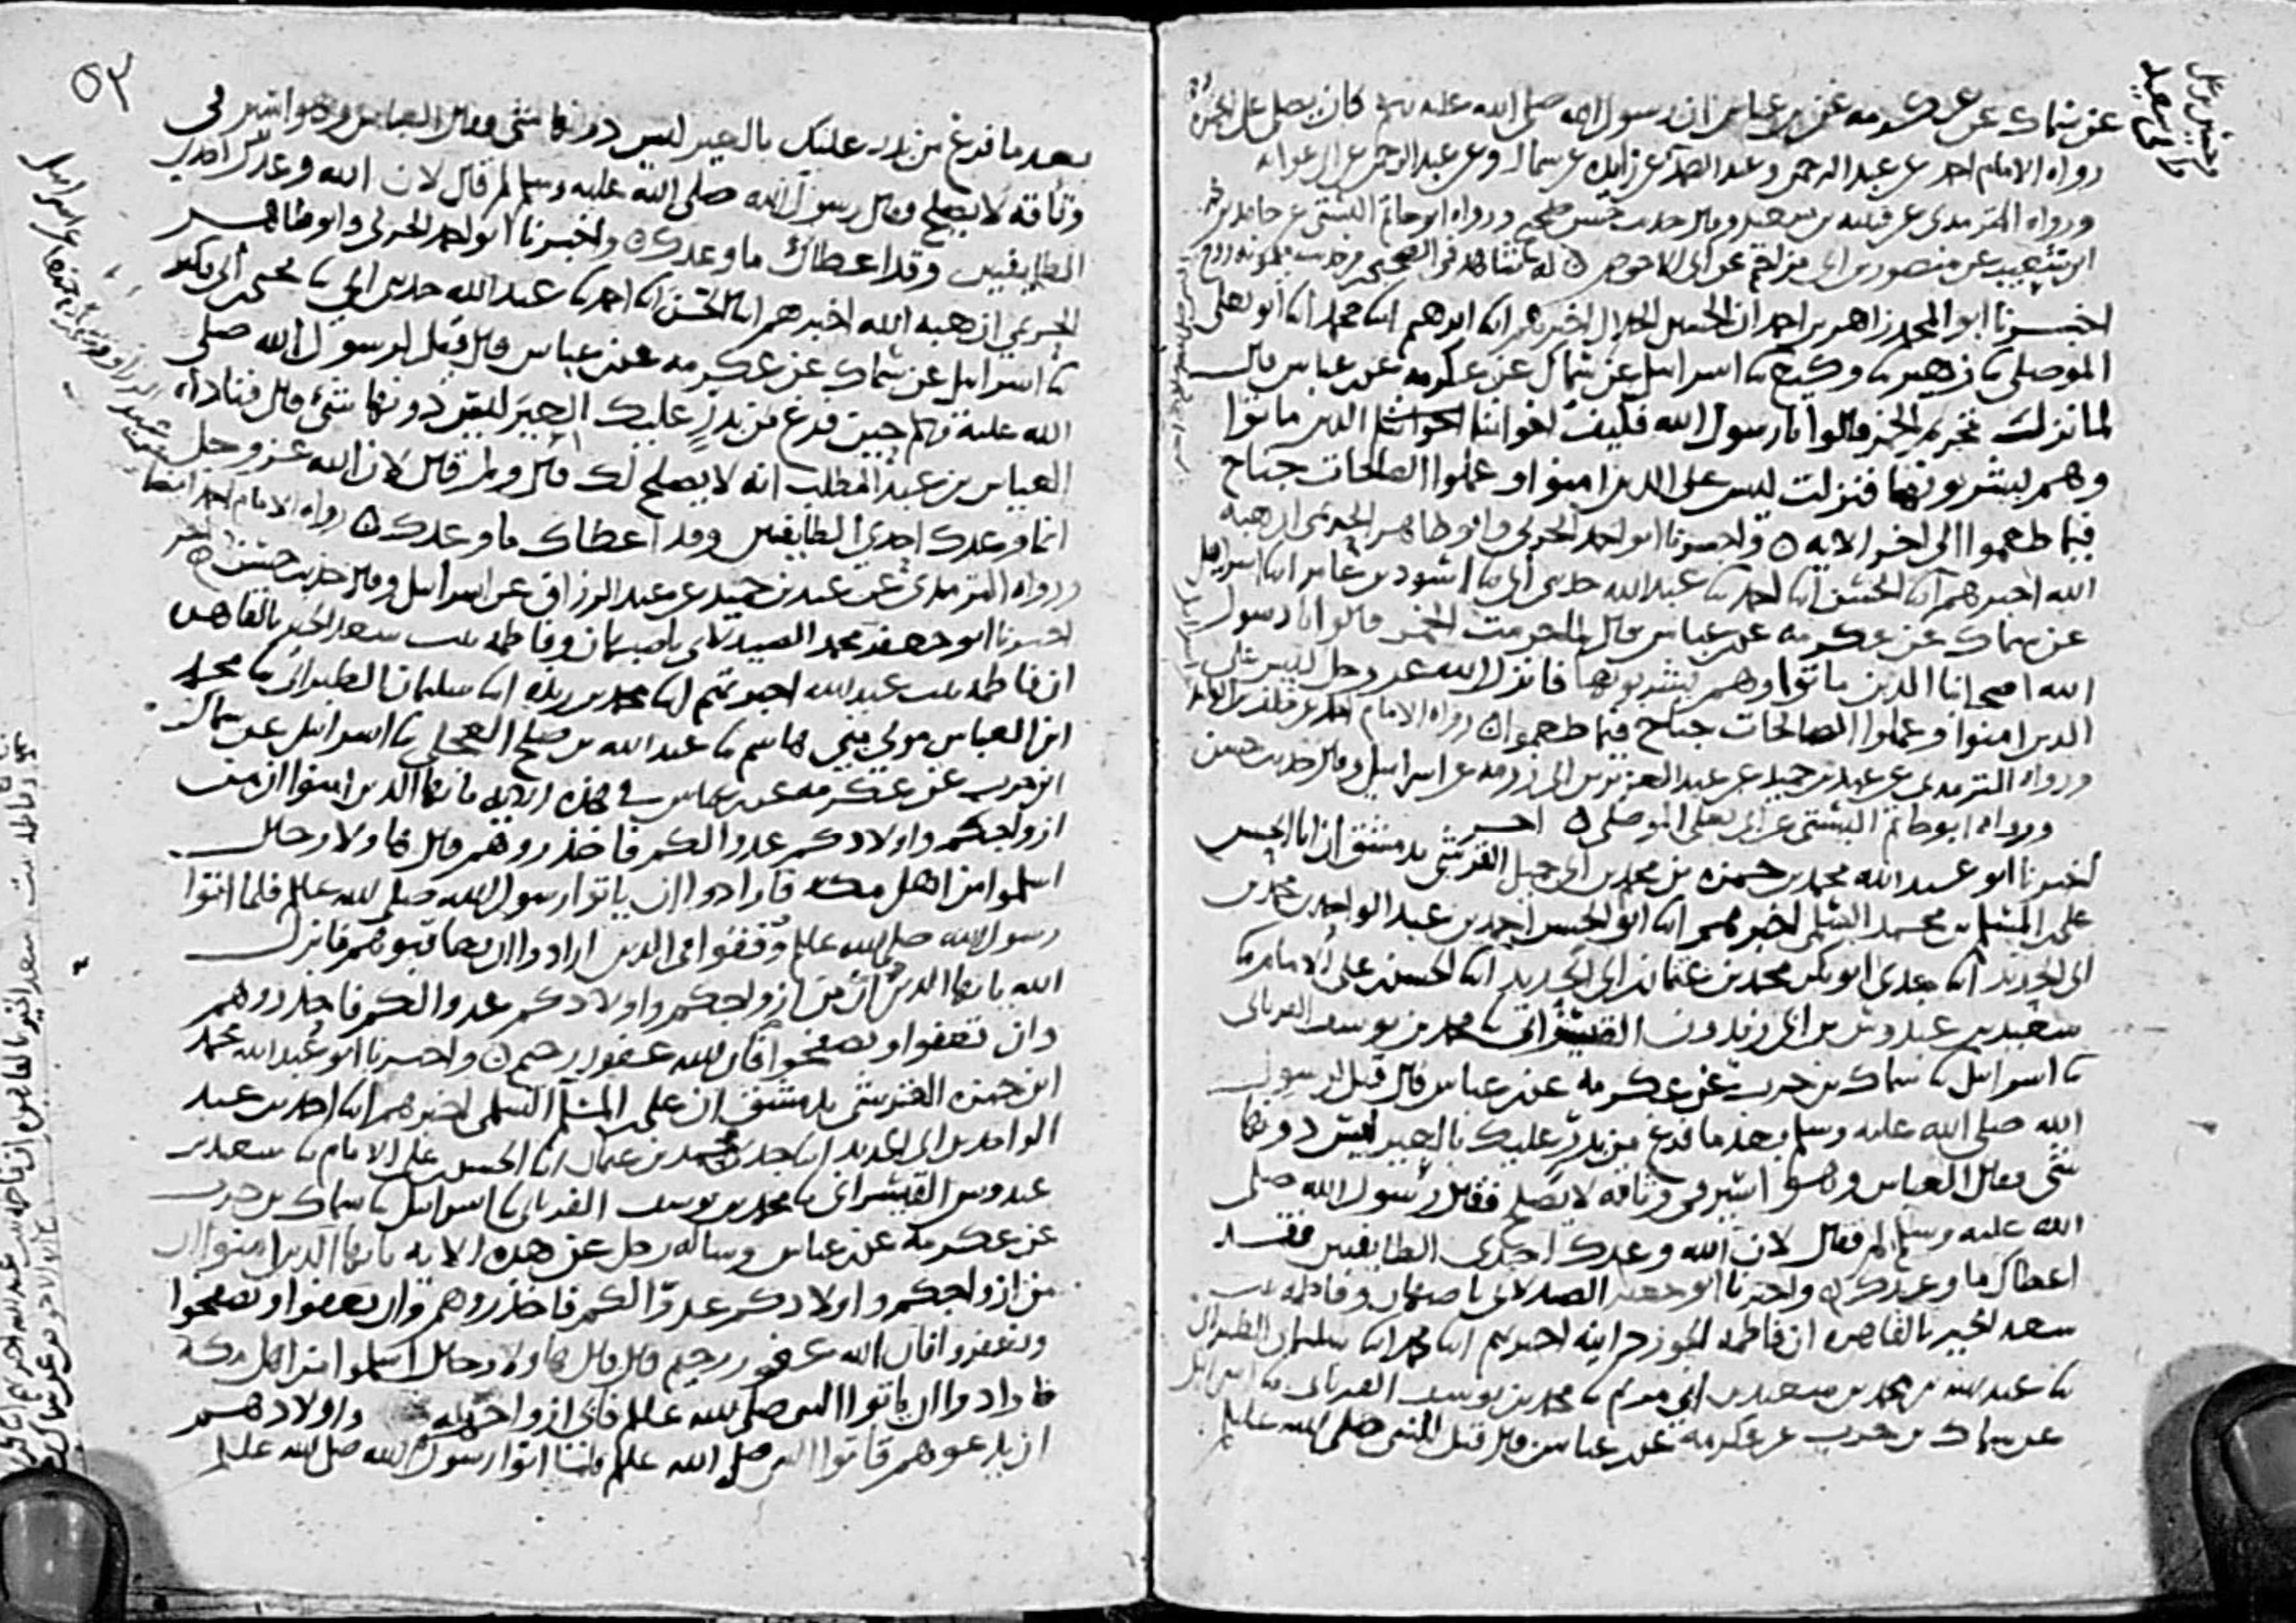 عن سماك عن عكرمه عن بن عباس ان رسول الله صلى الله عليه وسلم كان يصلي على الخمرة
رواه الامام احمد عن عبد الرحمن وعبد الصمد عن زايده عن سماك وعن عبد الرحمن عن ابي عوانه
ورواه الترمذي عن قتيبه بن سعيد وقال حديث حسن صحيح ورواه ابو حاتم البستي عن حامد بن محمد
ابن شعيب عن منصور بن ابي مزاحم عن ابي الاحوص له شاهد في الصحيحين من حديث ميمونه زوج
اخبرنا ابو المجد زاهر بن احمد ان الحسين الخلال اخبرهم ابنا ابرهيم ابنا محمد ابنا ابو يعلى
الموصلي ثنا زهير ثنا وكيع ثنا اسرايل عن سماك عن عكرمه عن بن عباس قال
لما نزلت تحريم الخمر قالوا يا رسول الله فكيف اخواننا الذين ماتوا
وهم يشربونها فنزلت ليس على الذين امنوا وعملوا الصالحات جناح
فيما طعموا الى اخر الايه واخبرنا ابو احمد الحربي وابو طاهر الحريمي ان هبه
الله اخبرهم ابنا الحسن ابنا احمد ثنا عبد الله حدثني ابي ثنا اسود بن عامر ابنا اسرايل
عن سماك عن عكرمه عن بن عباس قال لما حرمت الخمر قالوا يا رسول
الله اصحابنا الذين ماتوا وهم يشربونها فانزل الله عز وجل ليس على
الذين امنوا وعملوا الصالحات جناح فيما طعموا رواه الامام احمد عن
ورواه الترمذي عن عبد بن حميد عن عبد العزيز بن ابي رزمه عن اسرايل وقال حديث حسن
ورواه ابو حاتم البستي عن ابي يعلى الموصلي اخر
اخبرنا ابو عبد الله محمد بن حمزه بن محمد بن ابي جميل القرشي بدمشق ان ابا الحسن
علي بن المسلم بن محمد السلمي اخبرهم ابنا ابو الحسن احمد بن عبد الواحد بن محمد بن
ابي الحديد ابنا جدي ابو بكر محمد بن عثمان ابي الحديد ابنا الحسن بن علي الامام ثنا
سعيد بن عبدوس بن ابي زيدون القيسراني ثنا محمد بن يوسف الفريابي
ثنا اسرايل ثنا سماك بن حرب عن عكرمه عن بن عباس قال قيل لرسول
الله صلى الله عليه وسلم بعد ما فرغ من بدر عليك بالعير ليس دونها
شي فقال العباس وهو اسير في وثاقه لا يصلح فقال رسول الله صلى
الله عليه وسلم لم فقال لان الله وعدك احدى الطايفتين فقد
اعطاك ما وعدك واخبرنا ابو جعفر الصيدلاني باصبهان وفاطمه بنت
سعد الخير بالقاهره ان فاطمه الجوزدانيه اخبرتهم ابنا محمد ابنا سليمان الطبراني
ثنا عبد الله بن محمد بن سعيد بن ابي مريم ثنا محمد بن يوسف الفريابي ثنا اسرايل
عن سماك بن حرب عن عكرمه عن بن عباس قال قيل للنبي صلى الله عليه
٥٣
بعد ما فرغ من بدر عليك بالعير ليس دونها شي فقال العباس وهو اسير في
وثاقه لا يصلح فقال رسول الله صلى الله عليه وسلم لم قال لان الله وعدك احدى
الطايفتين وقد اعطاك ما وعدك واخبرنا ابو احمد الحربي وابو طاهر
الحريمي ان هبه الله اخبرهم ابنا الحسن ابنا احمد ثنا عبد الله حدثني ابي ثنا يحيى بن ابي بكير
ثنا اسرايل عن سماك عن عكرمه عن بن عباس قال قيل لرسول الله صلى
الله عليه وسلم حين فرغ من بدر عليك العير ليس دونها شي قال فناداه
العباس بن عبد المطلب انه لا يصلح لك قال ولم قال لان الله عز وجل
انما وعدك احدى الطايفتين وقد اعطاك ما وعدك رواه الامام احمد ايضا
ورواه الترمذي عن عبد بن حميد عن عبد الرزاق عن اسرايل وقال حديث حسن اخر
اخبرنا ابو جعفر محمد الصيدلاني باصبهان وفاطمه بنت سعد الخير بالقاهره
ان فاطمه بنت عبد الله اخبرتهم ابنا محمد بن ريذه ابنا سليمان الطبراني ثنا محمد
ابن العباس مولى بني هاشم ثنا عبد الله بن صالح العجلي ثنا اسرايل عن سماك
ابن حرب عن عكرمه عن بن عباس في هذه الايه يا ايها الذين امنوا ان من
ازواجكم واولادكم عدوا لكم فاحذروهم قال هاولا رجال
اسلموا من اهل مكه فارادوا ان ياتوا رسول الله صلى الله عليه فلما اتوا
رسول الله صلى الله عليه وقفوا في الدين ارادوا ان يعاقبوهم فانزل
الله يا ايها الذين ان من ازواجكم واولادكم عدوا لكم فاحذروهم
وان تعفوا وتصفحوا فان الله غفور رحيم واخبرنا ابو عبد الله محمد
ابن حمزه القرشي بدمشق ان علي بن المسلم السلمي اخبرهم ابنا احمد بن عبد
الواحد بن ابي الحديد ابنا جدي محمد بن عثمان ابنا الحسن بن علي الامام ثنا سعيد بن
عبدوس القيسراني ثنا محمد بن يوسف الفريابي ثنا اسرايل ثنا سماك بن حرب
عن عكرمه عن بن عباس وساله رجل عن هذه الايه يا ايها الذين امنوا ان
من ازواجكم واولادكم عدوا لكم فاحذروهم وان تعفوا وتصفحوا
وتغفروا فان الله غفور رحيم قال قال هاولا رجال اسلموا من اهل مكه
فارادوا ان ياتوا النبي صلى الله عليه فابى ازواجهم واولادهم
ان يدعوهم فاتوا النبي صلى الله عليه فلما اتوا رسول الله صلى الله عليه